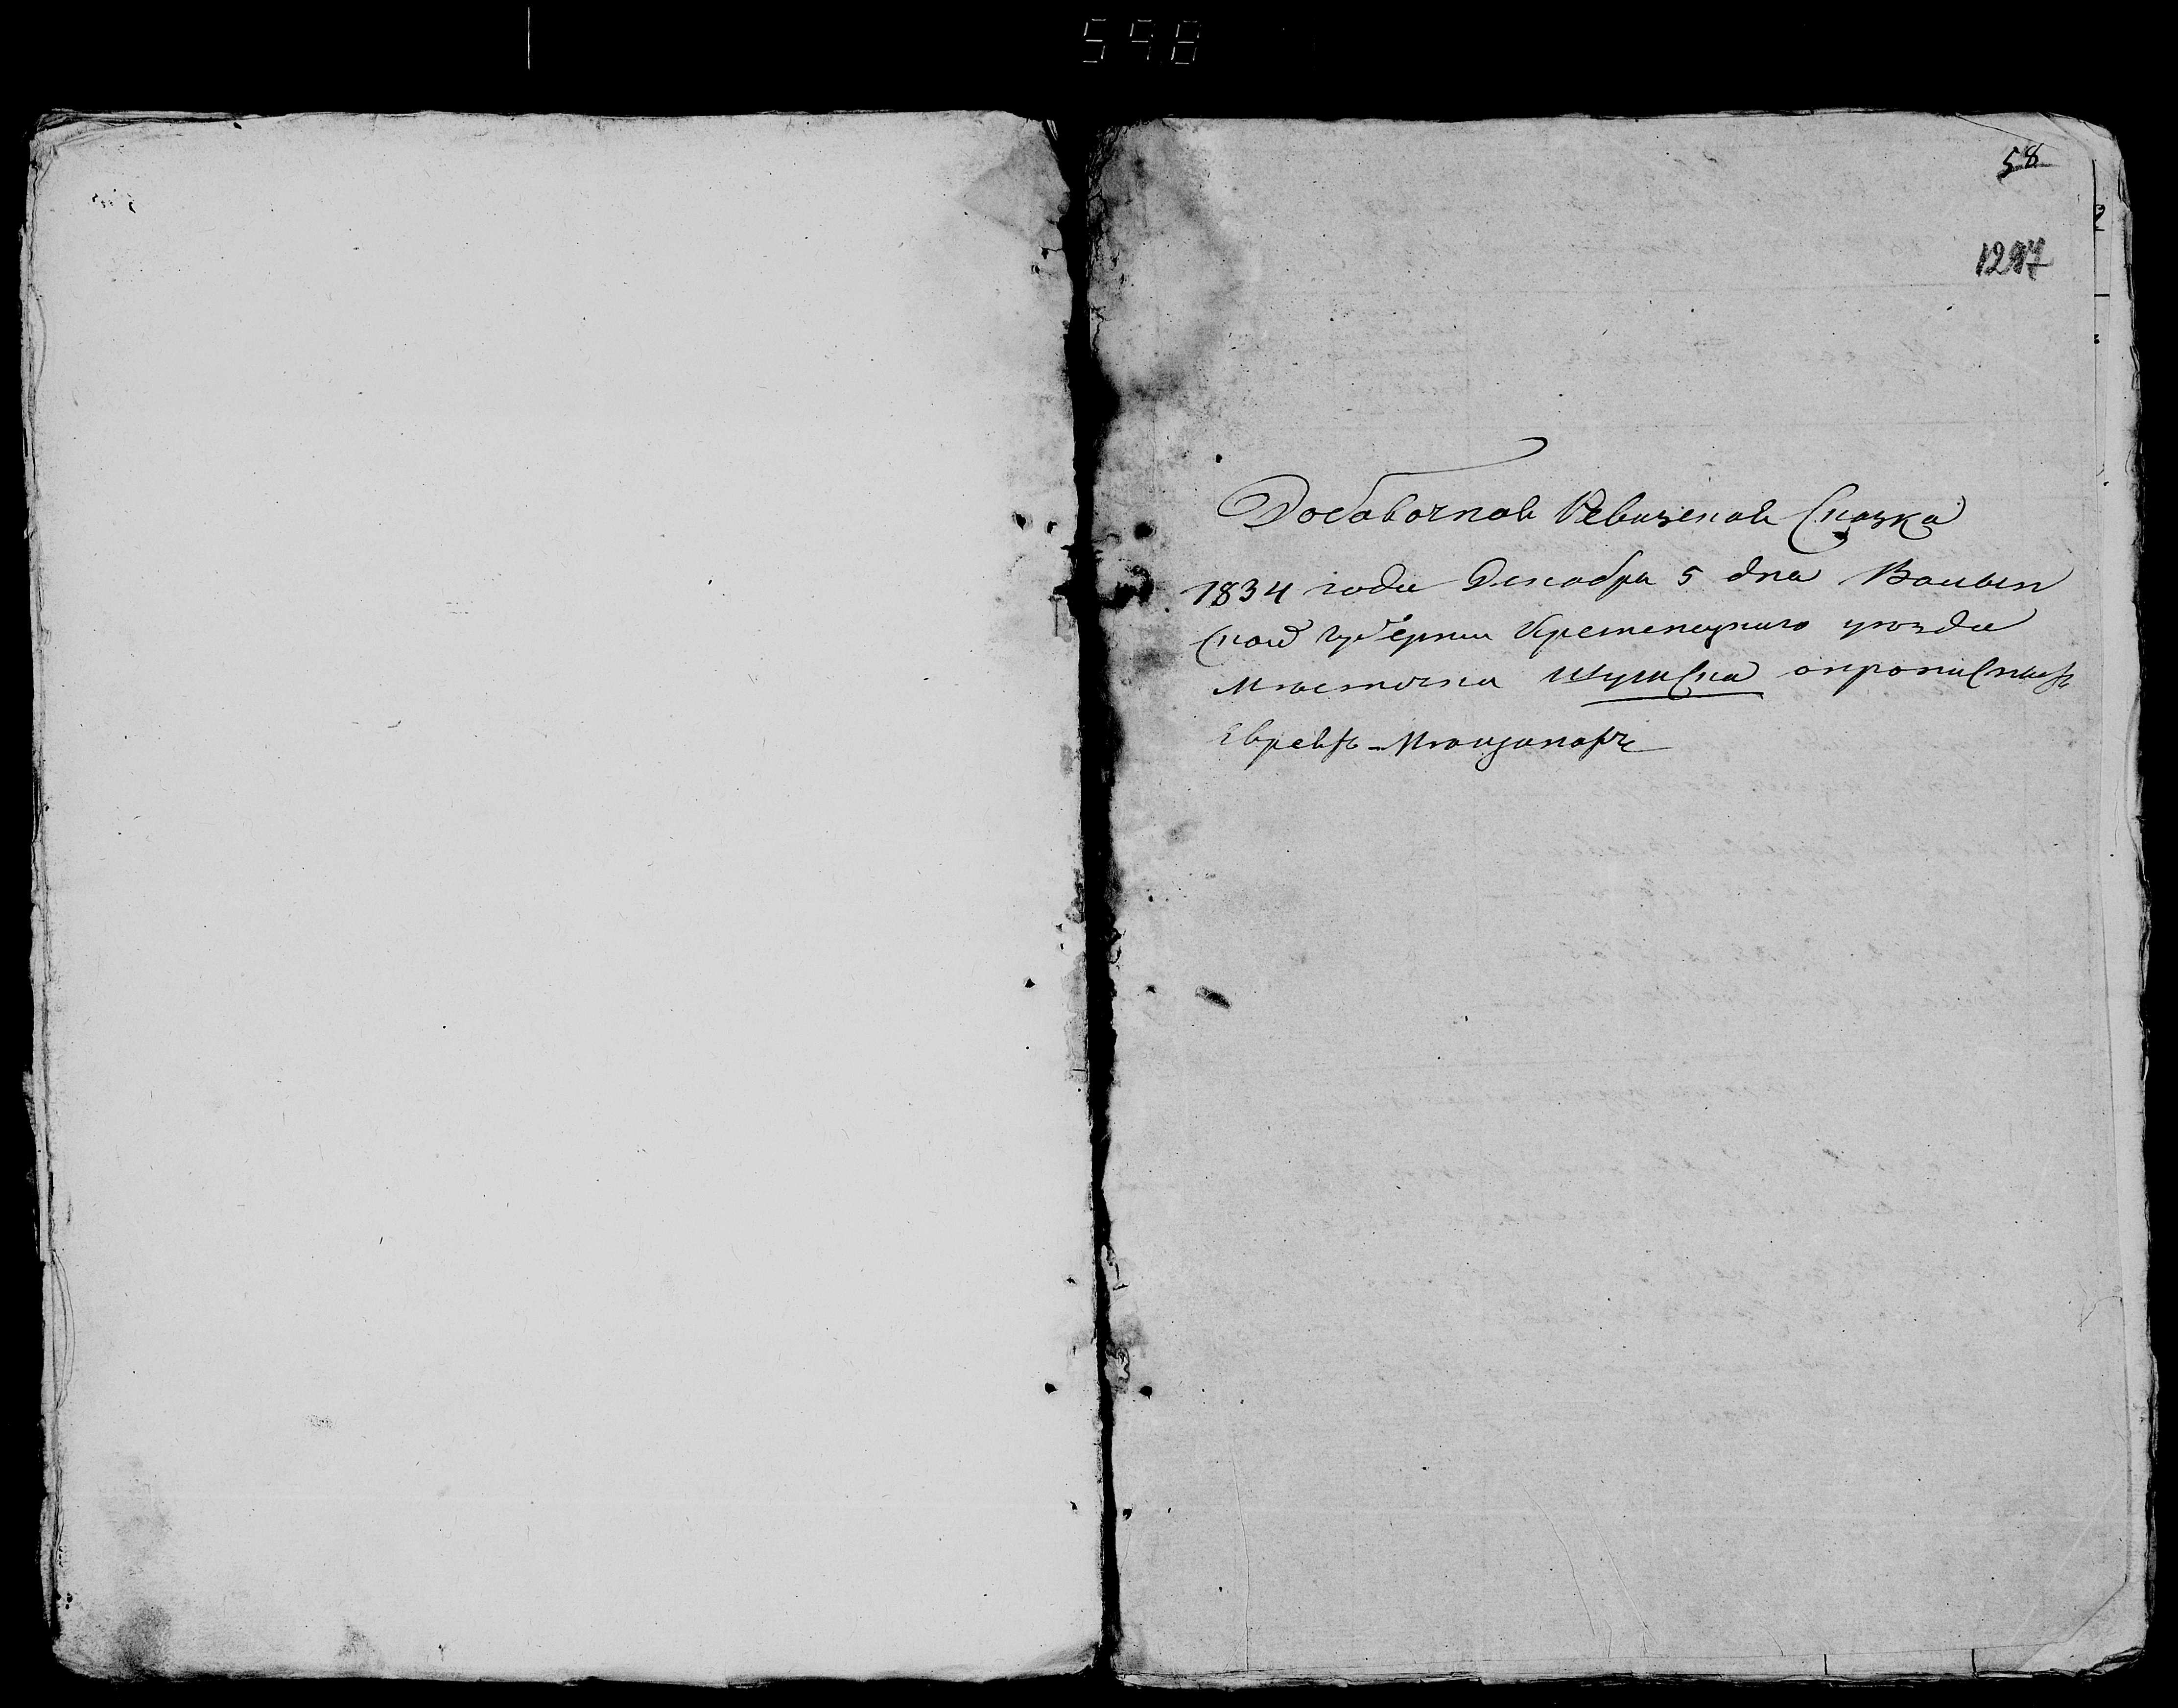 598
58
1297
Добавочная Ревизская Сказка
1834 года Декабря 5 дня Волын
ской губернии Кременецкаго уезда
Местечка Шумска о прописных
Евреях-Мещанах